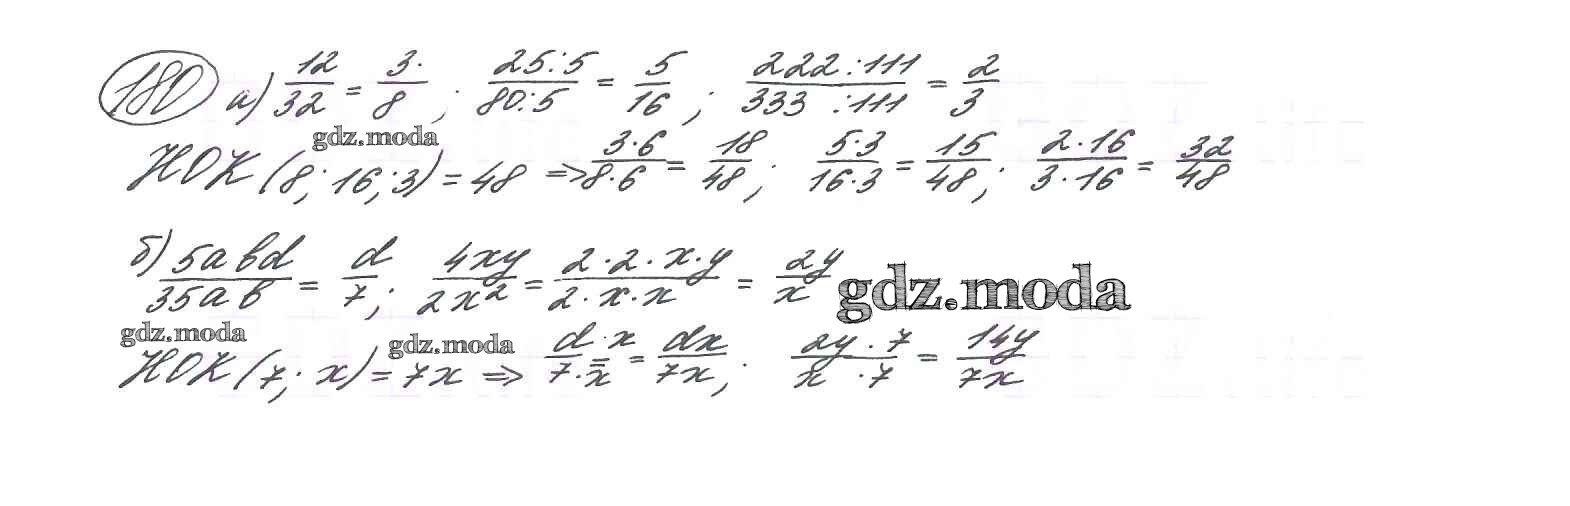 180 а) 12/32 = 3·/8 ; 25:5/80:5 = 5/16 ; 222:111/333 :111 = 2/3
gdz.moda
НОК (8; 16; 3) = 48 => 3·6/8·6 = 18/48 ; 5·3/16·3 = 15/48 ; 2·16/3·16 = 32/48
б) 5abd/35ab = d/7 ; 4xy/2x² = 2·2·x·y/2·x·x = 2y/x
gdz.moda
gdz.moda
gdz.moda
НОК (7; x) = 7x => d·x/7·x = = dx/7x ; 2y·7/x·7 = 14y/7x